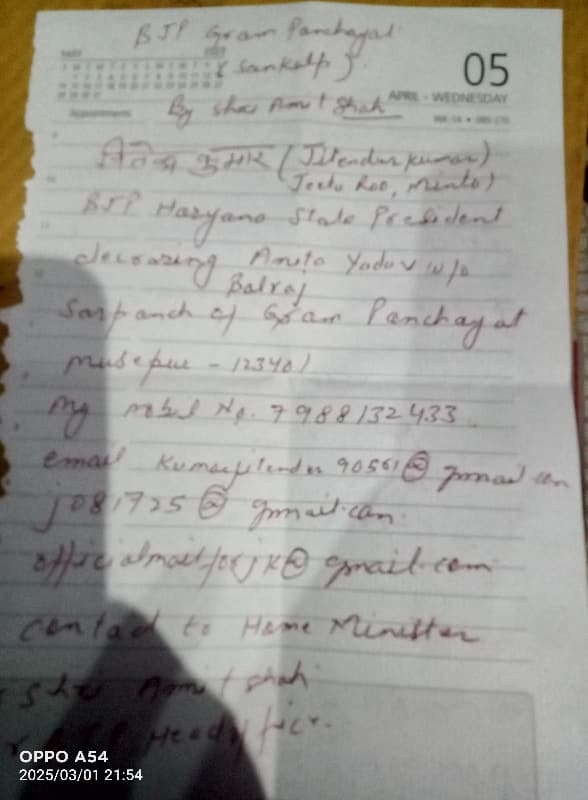 BJP Gram Panchayat
{ Sankalp }
05
APRIL - WEDNESDAY
Appointments
By shri Amit Shah
जितेन्द्र कुमार (Jitender Kumar)
Jeetu Rao, Minto)
BJP Haryana State President
Anita Yadav w/o
Balraj
Sarpanch of Gram Panchayat
musepur - 123401
my mobil No. 7988132433
email kumarjitender90561@gmail.com
j081725@gmail.com
officialmailforjk@gmail.com
contact to Home Minister
shri Amit shah
BJP Head
OPPO A54
2025/03/01 21:54